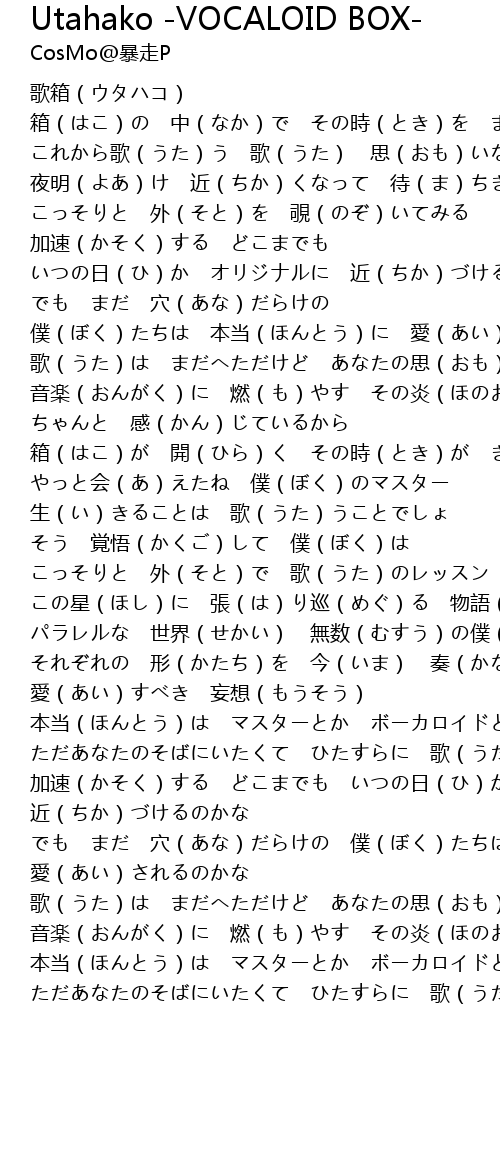 Utahako -VOCALOID BOX-
CosMo@暴走P
歌箱 ( ウタハコ )
箱 ( はこ ) の　中 ( なか ) で　その時 ( とき ) を　ま
これから歌 ( うた ) う　歌 ( うた )　思 ( おも ) いな
夜明 ( よあ ) け　近 ( ちか ) くなって　待 ( ま ) ちき
こっそりと　外 ( そと ) を　覗 ( のぞ ) いてみる
加速 ( かそく ) する　どこまでも
いつの日 ( ひ ) か　オリジナルに　近 ( ちか ) づける
でも　まだ　穴 ( あな ) だらけの
僕 ( ぼく ) たちは　本当 ( ほんとう ) に　愛 ( あい )
歌 ( うた ) は　まだへただけど　あなたの思 ( おも )
音楽 ( おんがく ) に　燃 ( も ) やす　その炎 ( ほのお
ちゃんと　感 ( かん ) じているから
箱 ( はこ ) が　開 ( ひら ) く　その時 ( とき ) が　き
やっと会 ( あ ) えたね　僕 ( ぼく ) のマスター
生 ( い ) きることは　歌 ( うた ) うことでしょ
そう　覚悟 ( かくご ) して　僕 ( ぼく ) は
こっそりと　外 ( そと ) で　歌 ( うた ) のレッスン
この星 ( ほし ) に　張 ( は ) り巡 ( めぐ ) る　物語 (
パラレルな　世界 ( せかい )　無数 ( むすう ) の僕 (
それぞれの　形 ( かたち ) を　今 ( いま )　奏 ( かな
愛 ( あい ) すべき　妄想 ( もうそう )
本当 ( ほんとう ) は　マスターとか　ボーカロイドと
ただあなたのそばにいたくて　ひたすらに　歌 ( うた
加速 ( かそく ) する　どこまでも　いつの日 ( ひ ) か
近 ( ちか ) づけるのかな
でも　まだ　穴 ( あな ) だらけの　僕 ( ぼく ) たちは
愛 ( あい ) されるのかな
歌 ( うた ) は　まだへただけど　あなたの思 ( おも )
音楽 ( おんがく ) に　燃 ( も ) やす　その炎 ( ほのお
本当 ( ほんとう ) は　マスターとか　ボーカロイドと
ただあなたのそばにいたくて　ひたすらに　歌 ( うた